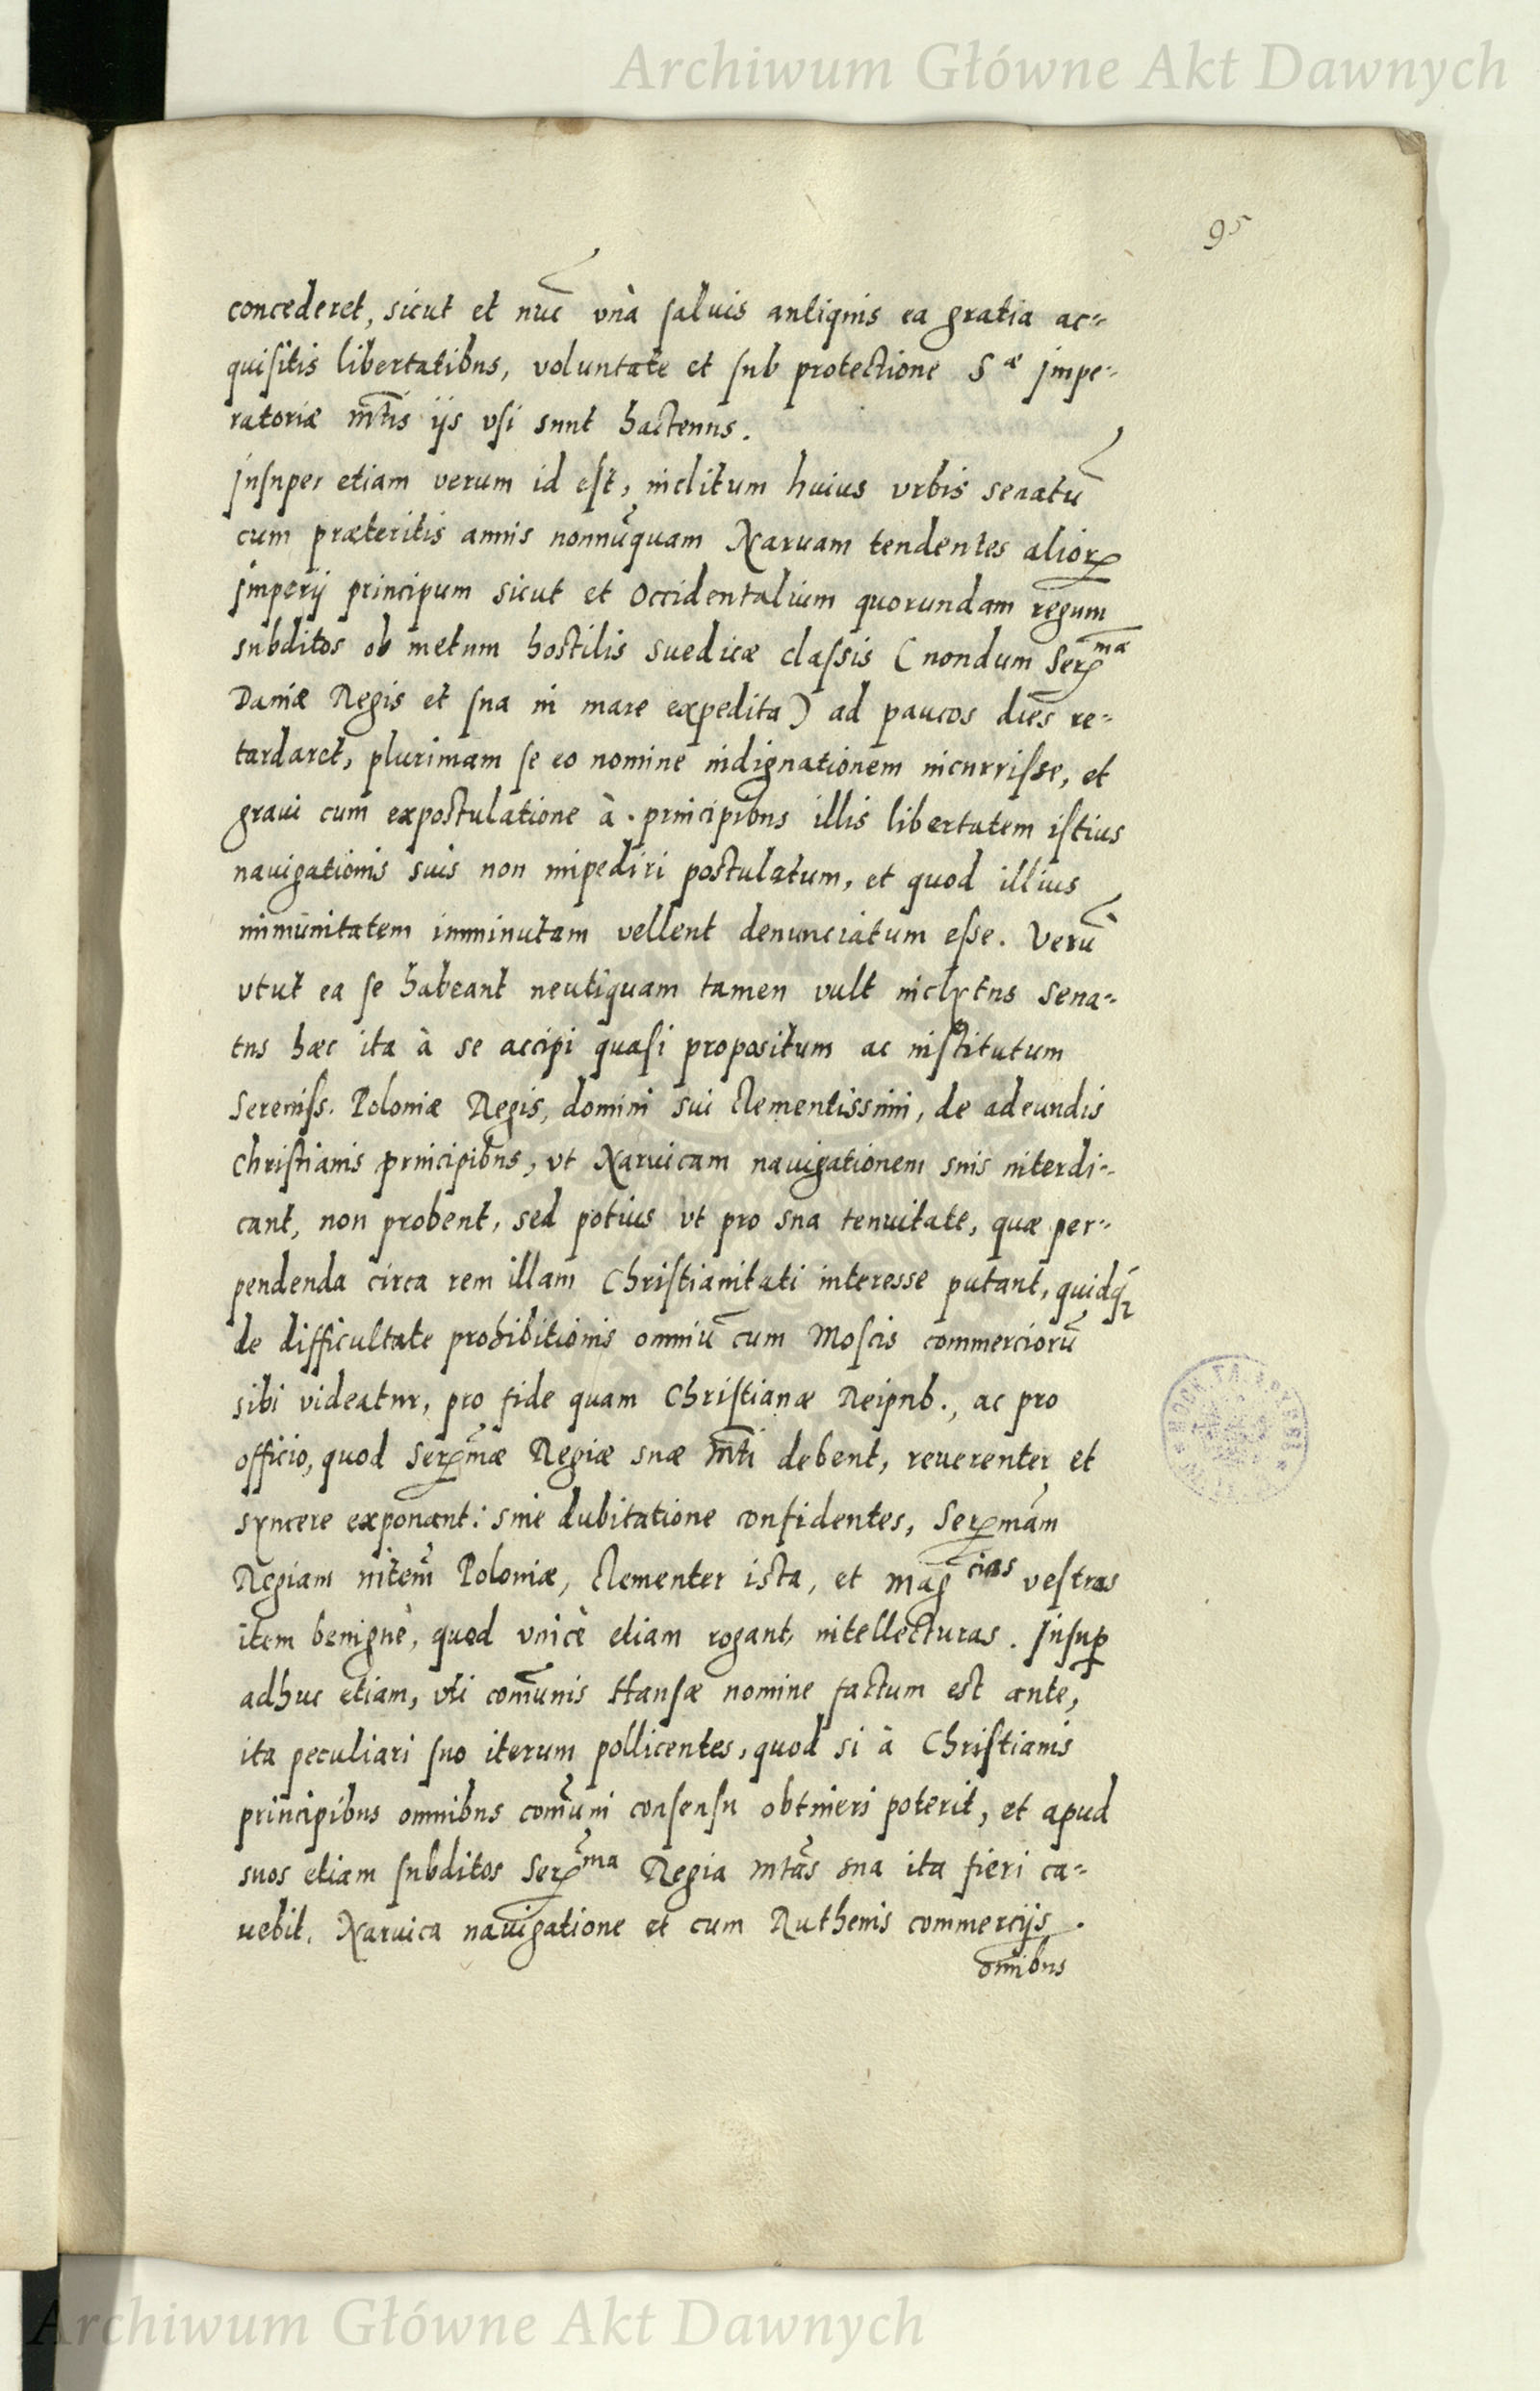 Archiwum Główne Akt Dawnych
95
concederet, sicut et nuc̄ vnà saluis antiquis ea gratia ac=
quisitis libertatibus, voluntate et sub protectione S æ Impe=
ratoriæ mtis ijs vsi sunt hactenus.
Insuper etiam verum id est, inclitum huius vrbis senatū
cum præteritis annis nonnūquam Naruam tendentes aliorꝝ
Imperij principum sicut et Occidentalium quorundam regum
subditos ob metum hostilis suedicæ classis (nondum Serꝰ mæ
Daniæ Regis et sua in mare expedita) ad paucos dies re=
tardaret, plurimam se eo nomine indignationem incurrisse, et
graui cum expostulatione à principibus illis libertatem istius
nauigationis suis non impediri postulatum, et quod illius
immunitatem imminutam vellent denunciatum esse. Verū
vtut ea se habeant neutiquam tamen vult inclytus Sena=
tus hæc ita à se accipi quasi propositum ac institutum
Sereniss. Poloniæ Regis, domini sui Clementissimi, de adeundis
Christianis principibus, vt Naruicam nauigationem suis interdi=
cant, non probent, sed potius vt pro sua tenuitate, quæ per=
pendenda circa rem illam Christianitati interesse putant, quidq́
de difficultate prohibitionis omniū cum Moscis commerciorū
sibi videatur, pro fide quam Christianæ Reipub., ac pro
officio, quod Serᵐæ Regiæ suæ mti debent, reuerenter et
syncere exponant: sine dubitatione confidentes, Serᵐām
Regiam mtem Poloniæ, Clementer ista, et Mag cias vestras
item benignè, quod vnicè etiam rogant, intellecturas. Insuꝑ
adhuc etiam, vti com̄unis Hansæ nomine factum est ante,
ita peculiari suo iterum pollicentes, quod si à Christianis
principibus omnibus com̄uni consensu obtineri poterit, et apud
suos etiam subditos Ser ma Regia mtas sua ita fieri ca=
uebit, Naruica nauigatione et cum Ruthenis commercijs
om̄ibus
Archiwum Główne Akt Dawnych